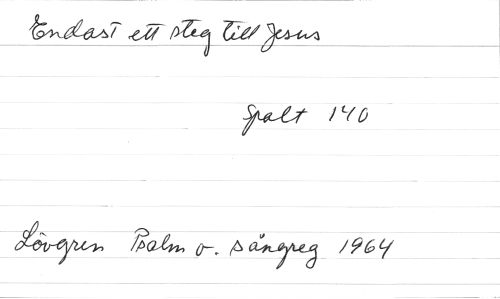 Endast ett steg till Jesus
Spalt 140
Lövgren Psalm o. sångreg 1964